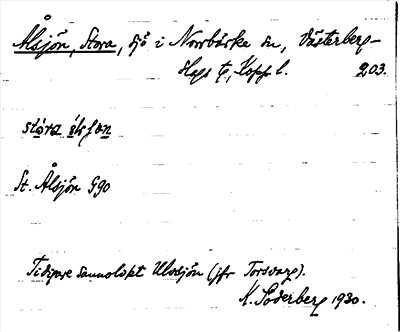 Ålsjön, Stora, sjö i Norrbärke sn, Västerberg-
slags t, Kopp l. 203.
stóra álsʃøn
St. Ålsjön G90
Tidigare sannolikt Ulvsjön (jfr Torsvarg).
K. Söderberg 1930.